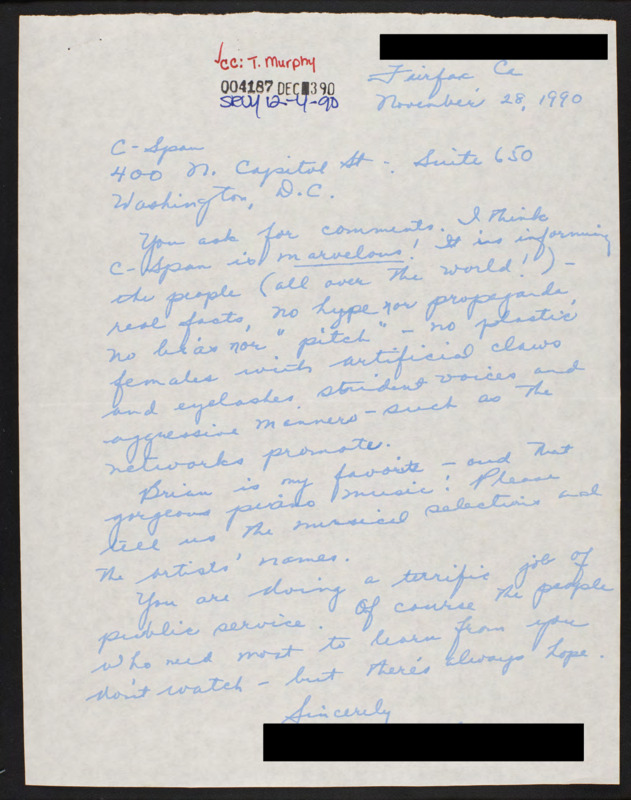 cc: T. Murphy
004187 DEC 390
12-4-90
Fairfax Ca
November 28, 1990
C-Span
400 N. Capitol St. Suite 650
Washington, D.C.
You ask for comments. I think
C-Span is marvelous! It is informing
the people (all over the world!) -
real facts, no hype nor propaganda,
no bias nor "pitch" - no plastic
females with artificial claws
and eyelashes strident voices and
aggressive manners - such as the
networks promote.
Brian is my favorite - and that
gorgeous piano music! Please
tell us the musical selections and
the artists' names.
You are doing a terrific job of
public service. Of course the people
who need most to learn from you
don't watch - but there's always hope.
Sincerely